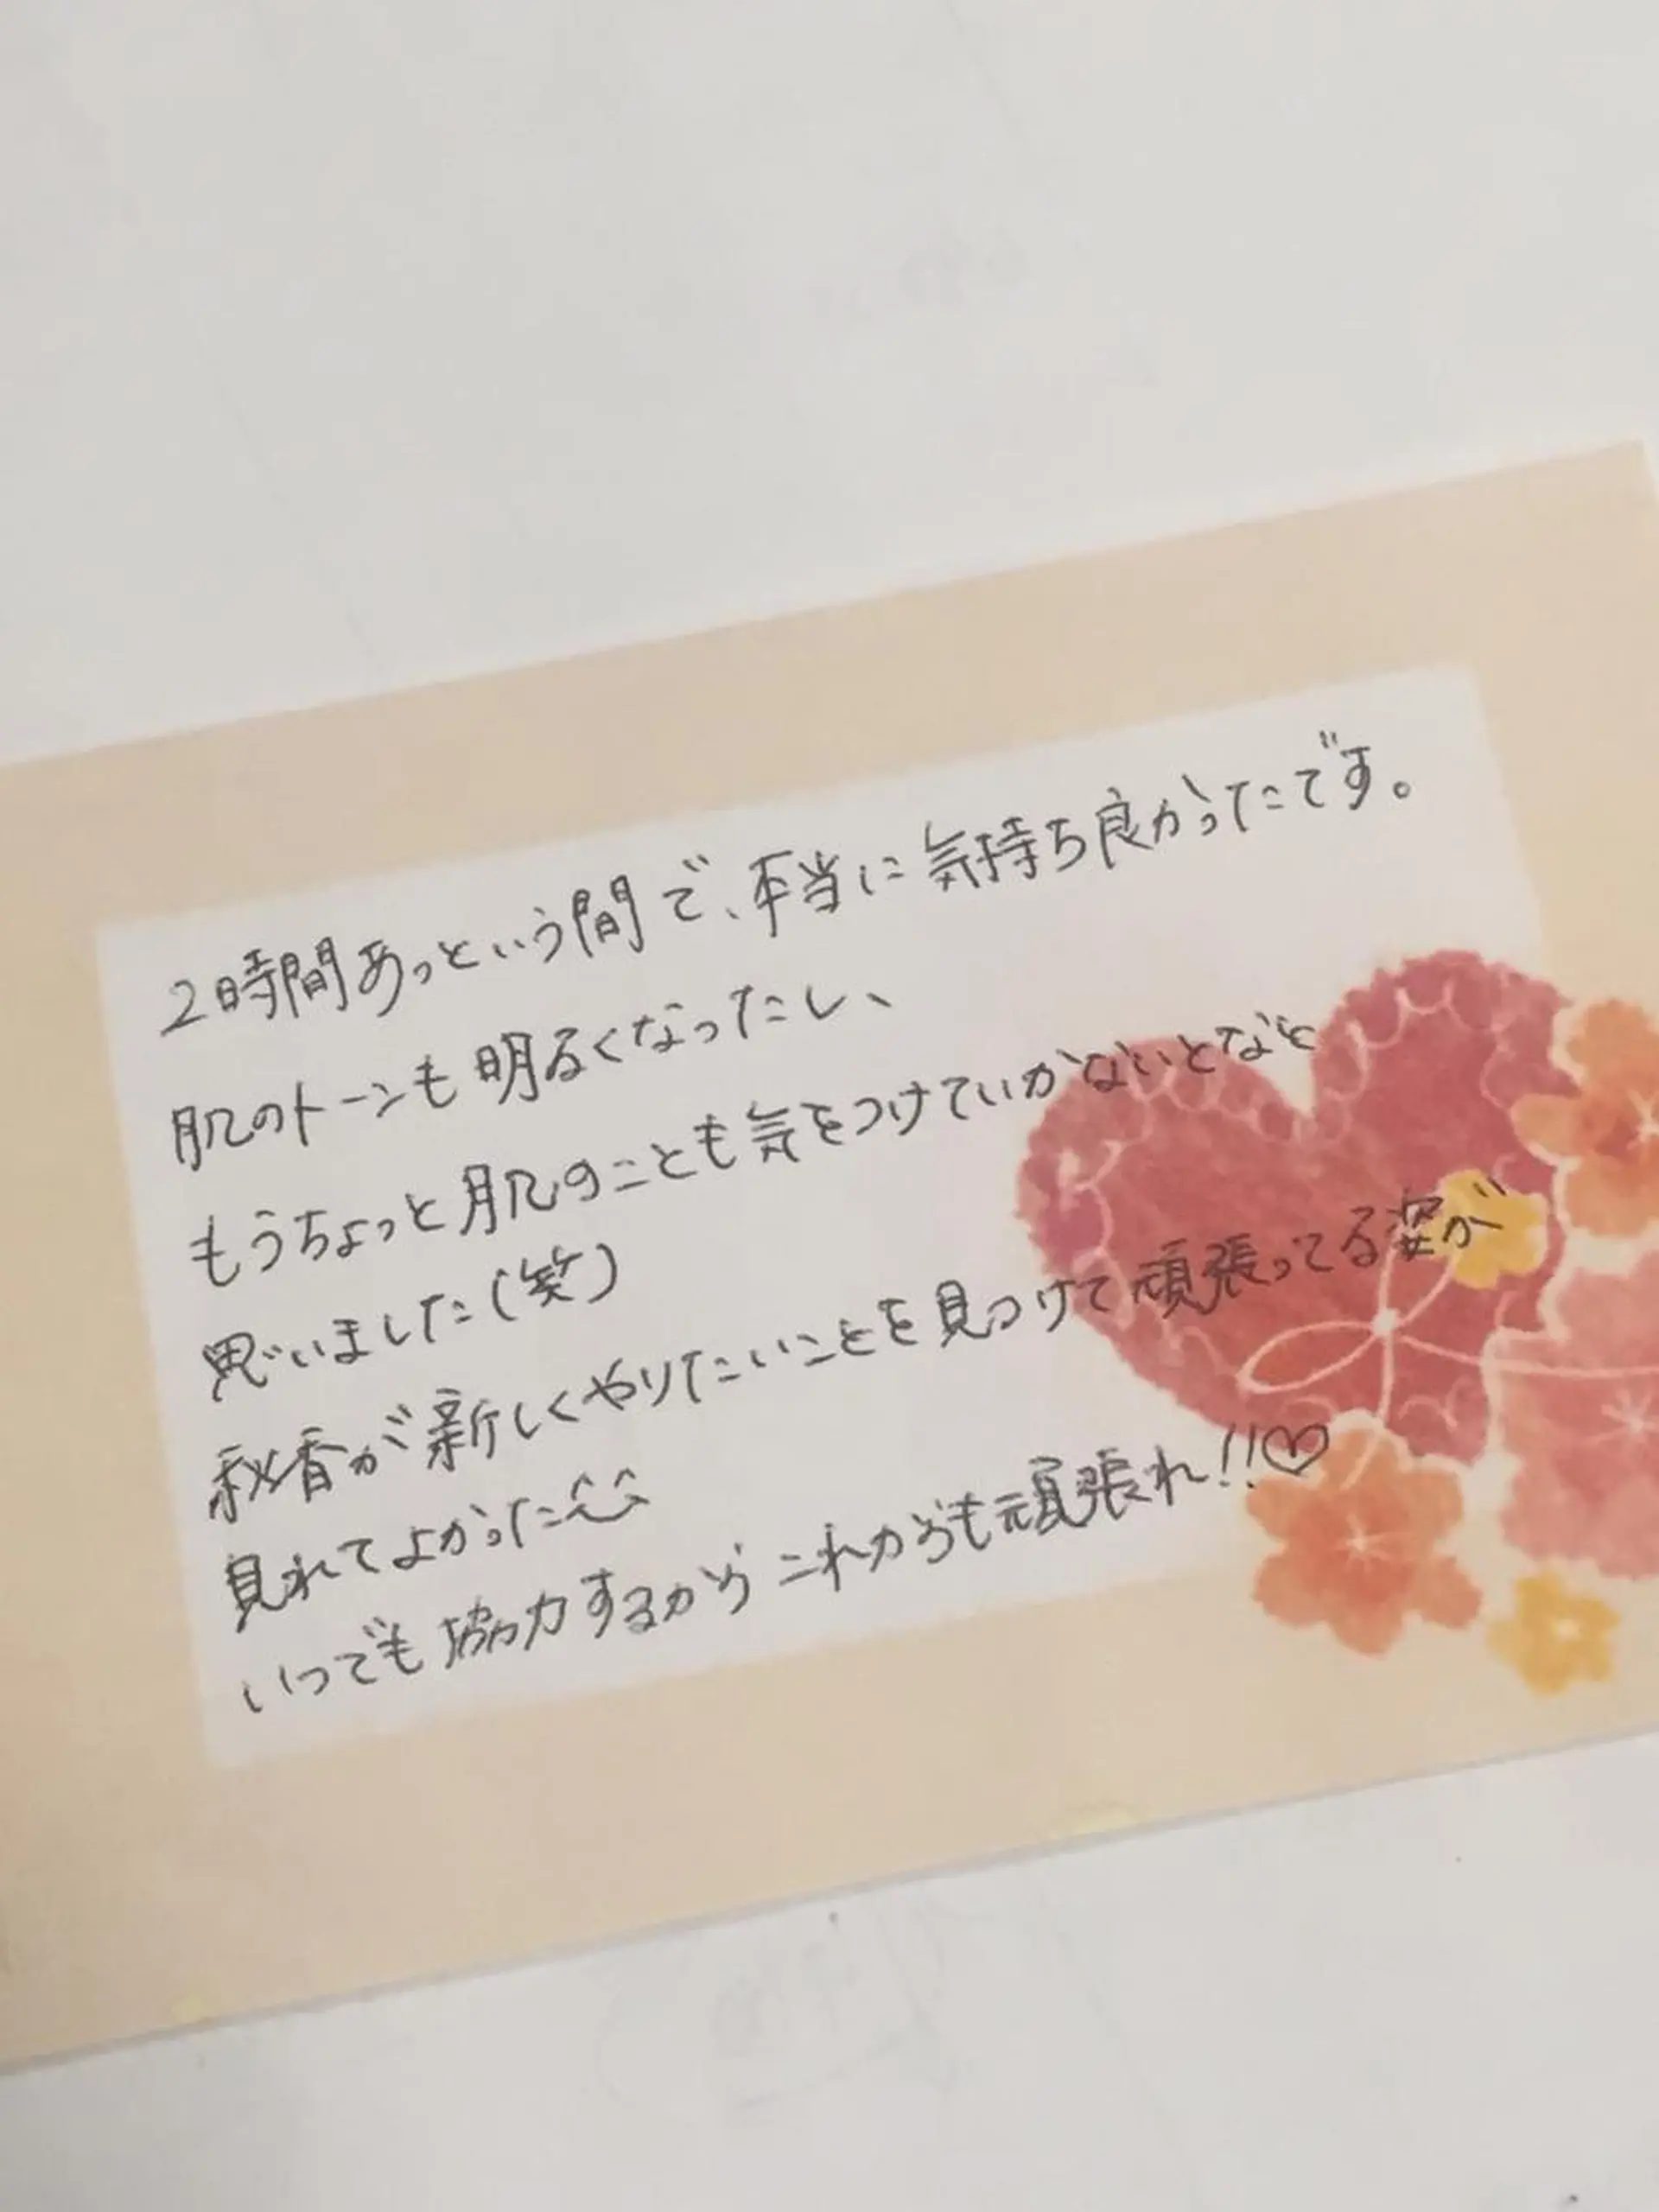 2時間あっという間で、本当に気持ち良かったです。
肌のトーンも明るくなったし、
もうちょっと肌のことも気をつけていかないとなと
思いました(笑)
秋香が新しくやりたいことを見つけて頑張ってる姿が
見れてよかった^^
いつでも協力するから これからも頑張れ!!♡